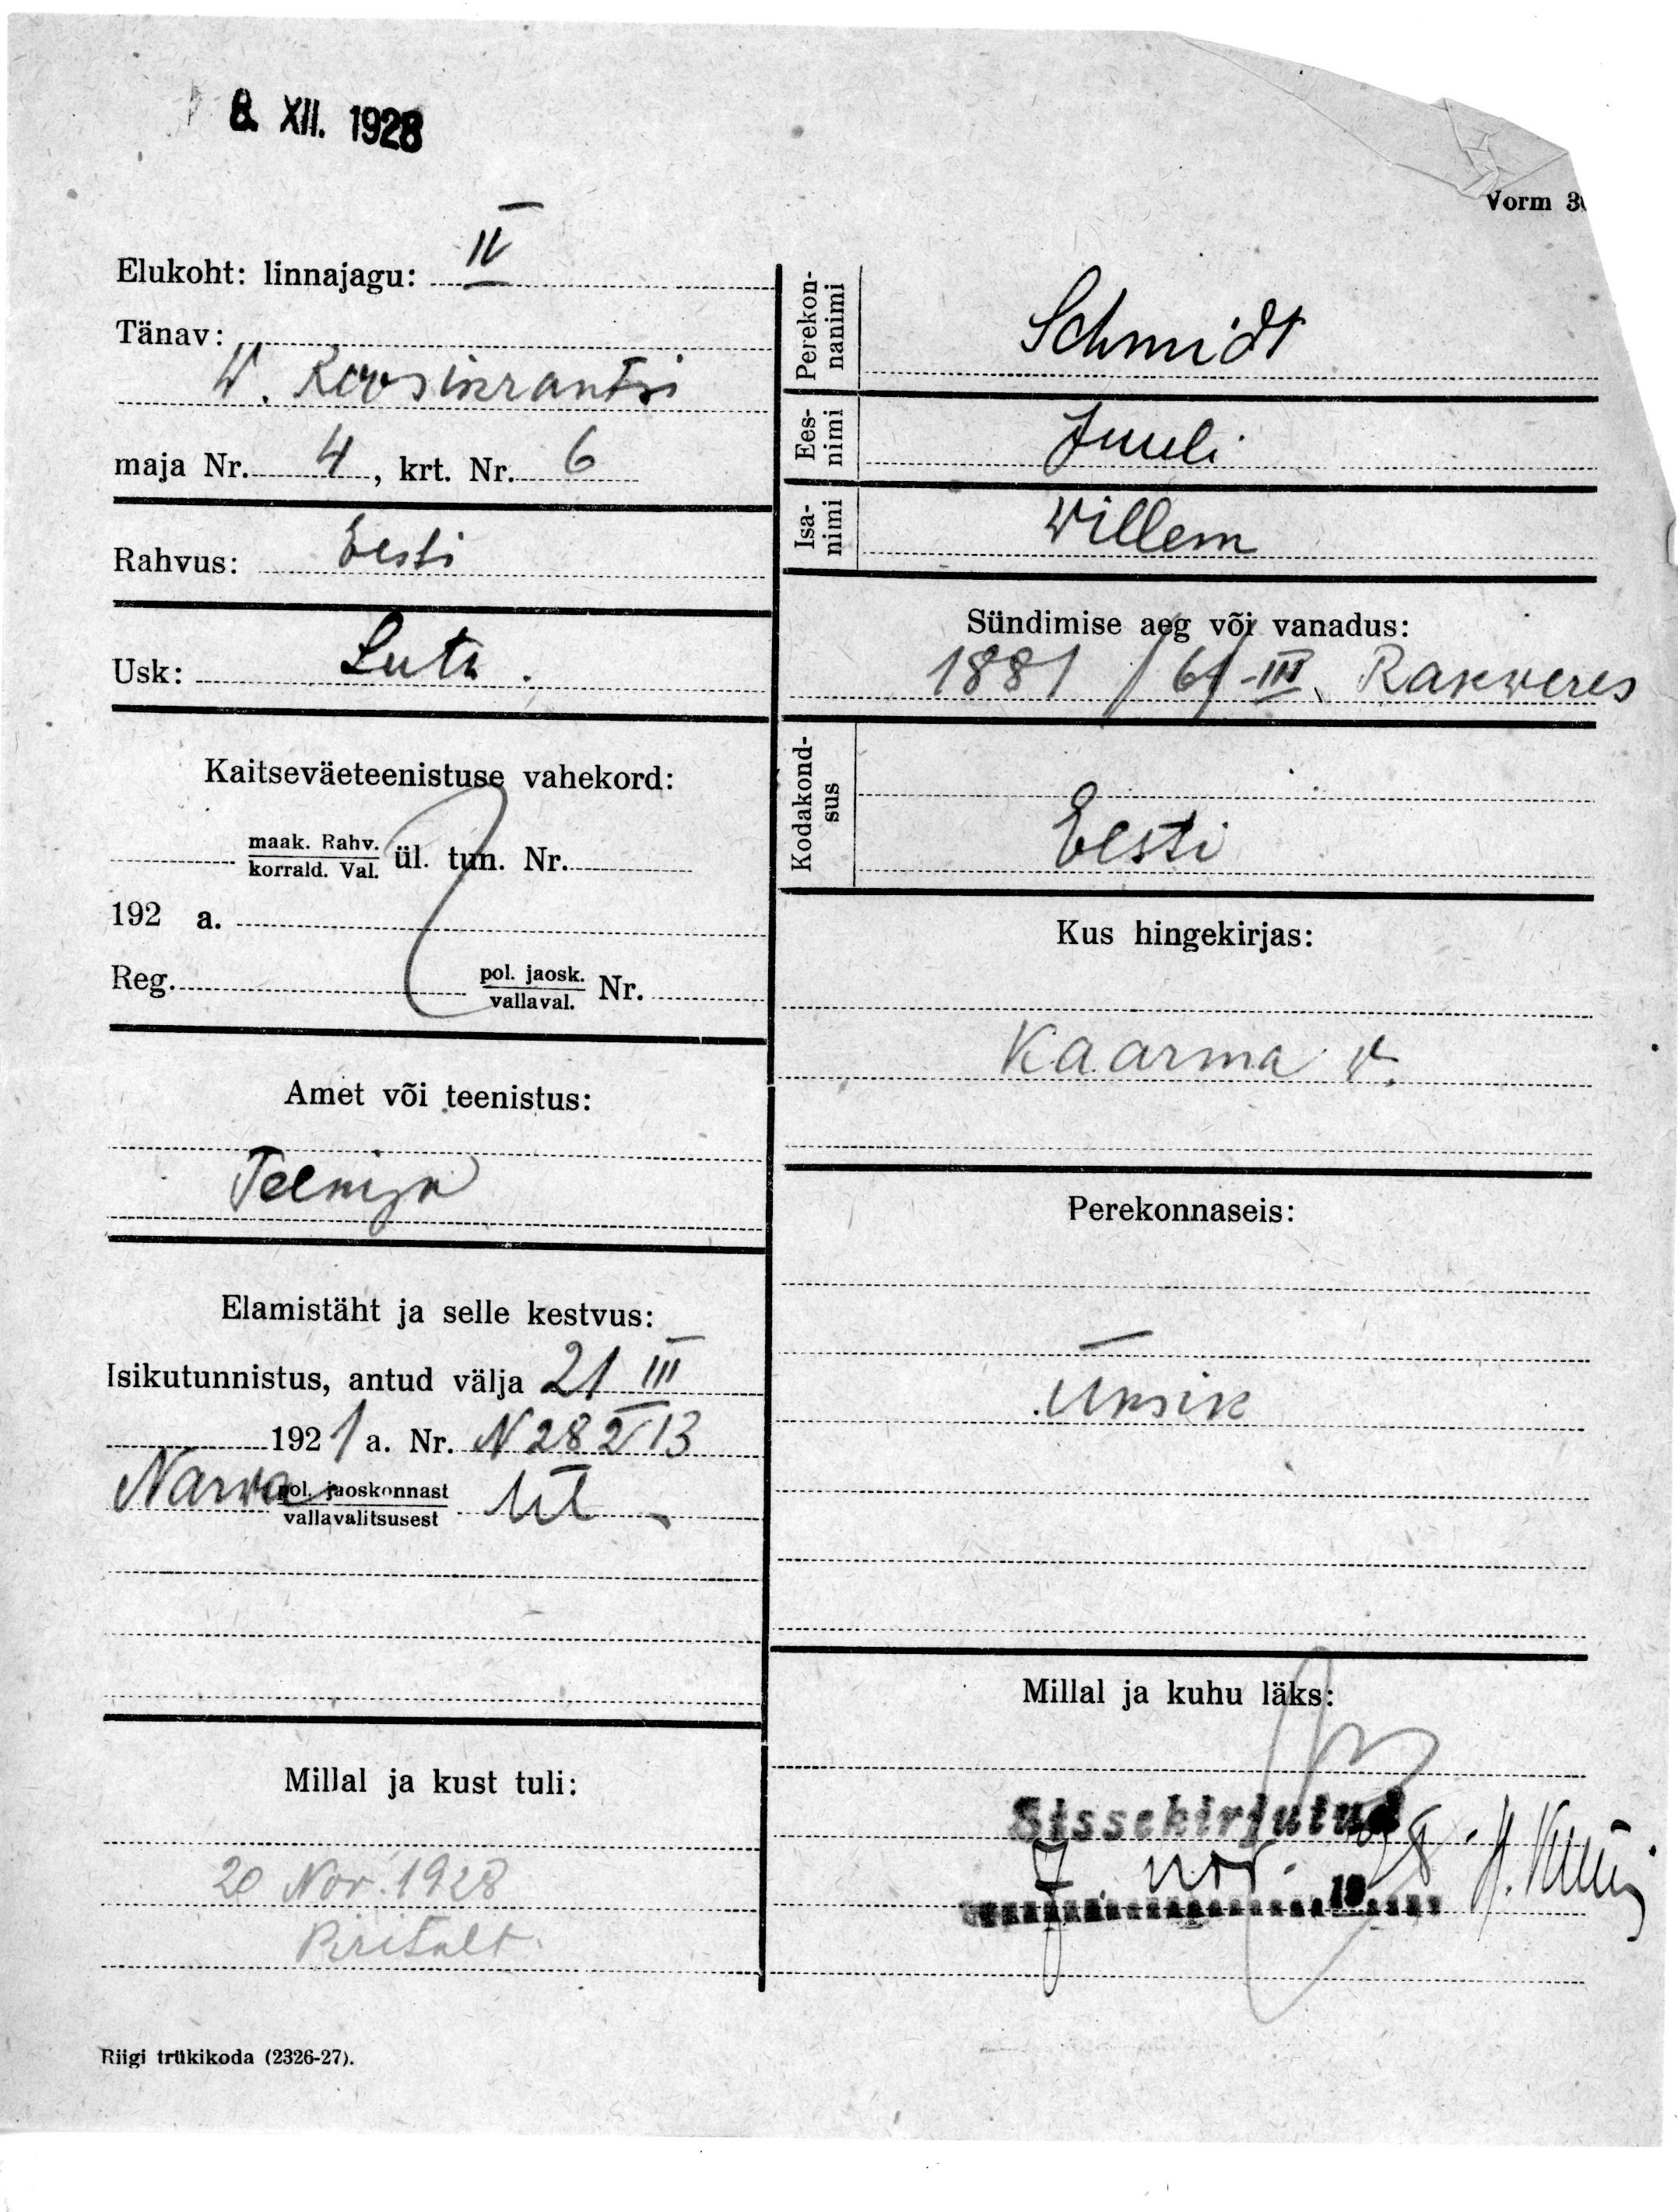 8. XII. 1928
Vorm 3
Elukoht: linnajagu: IV
Tänav:
W. Roosikrantsi
maja Nr. 4, krt. Nr. 6
Rahvus: Eesti
Usk: Lutr.
Kaitseväeteenistuse vahekord:
maak. Rahv.
korrald. Val. ül. tun. Nr.
192 a.
Reg. pol. jaosk.
vallaval. Nr.
Amet või teenistus:
Teenija
Elamistäht ja selle kestvus:
Isikutunnistus, antud välja 21 III
1921 a. Nr. N 28213
Narva pol. jaoskonnast
vallavalitsusest
Millal ja kust tuli:
20 Nov. 1928
Piritalt.
Perekon-
nanimi
Schmidt
Ees-
nimi
Juuli
Isa-
nimi
Willem
Sündimise aeg või vanadus:
1881 /6/-III Rakweres
Kodakond-
sus
Eesti
Kus hingekirjas:
Kaarma v.
Perekonnaseis:
Üksik
Millal ja kuhu läks:
Sissekirjutud
7. nov. 1928
Riigi trükikoda (2326-27).